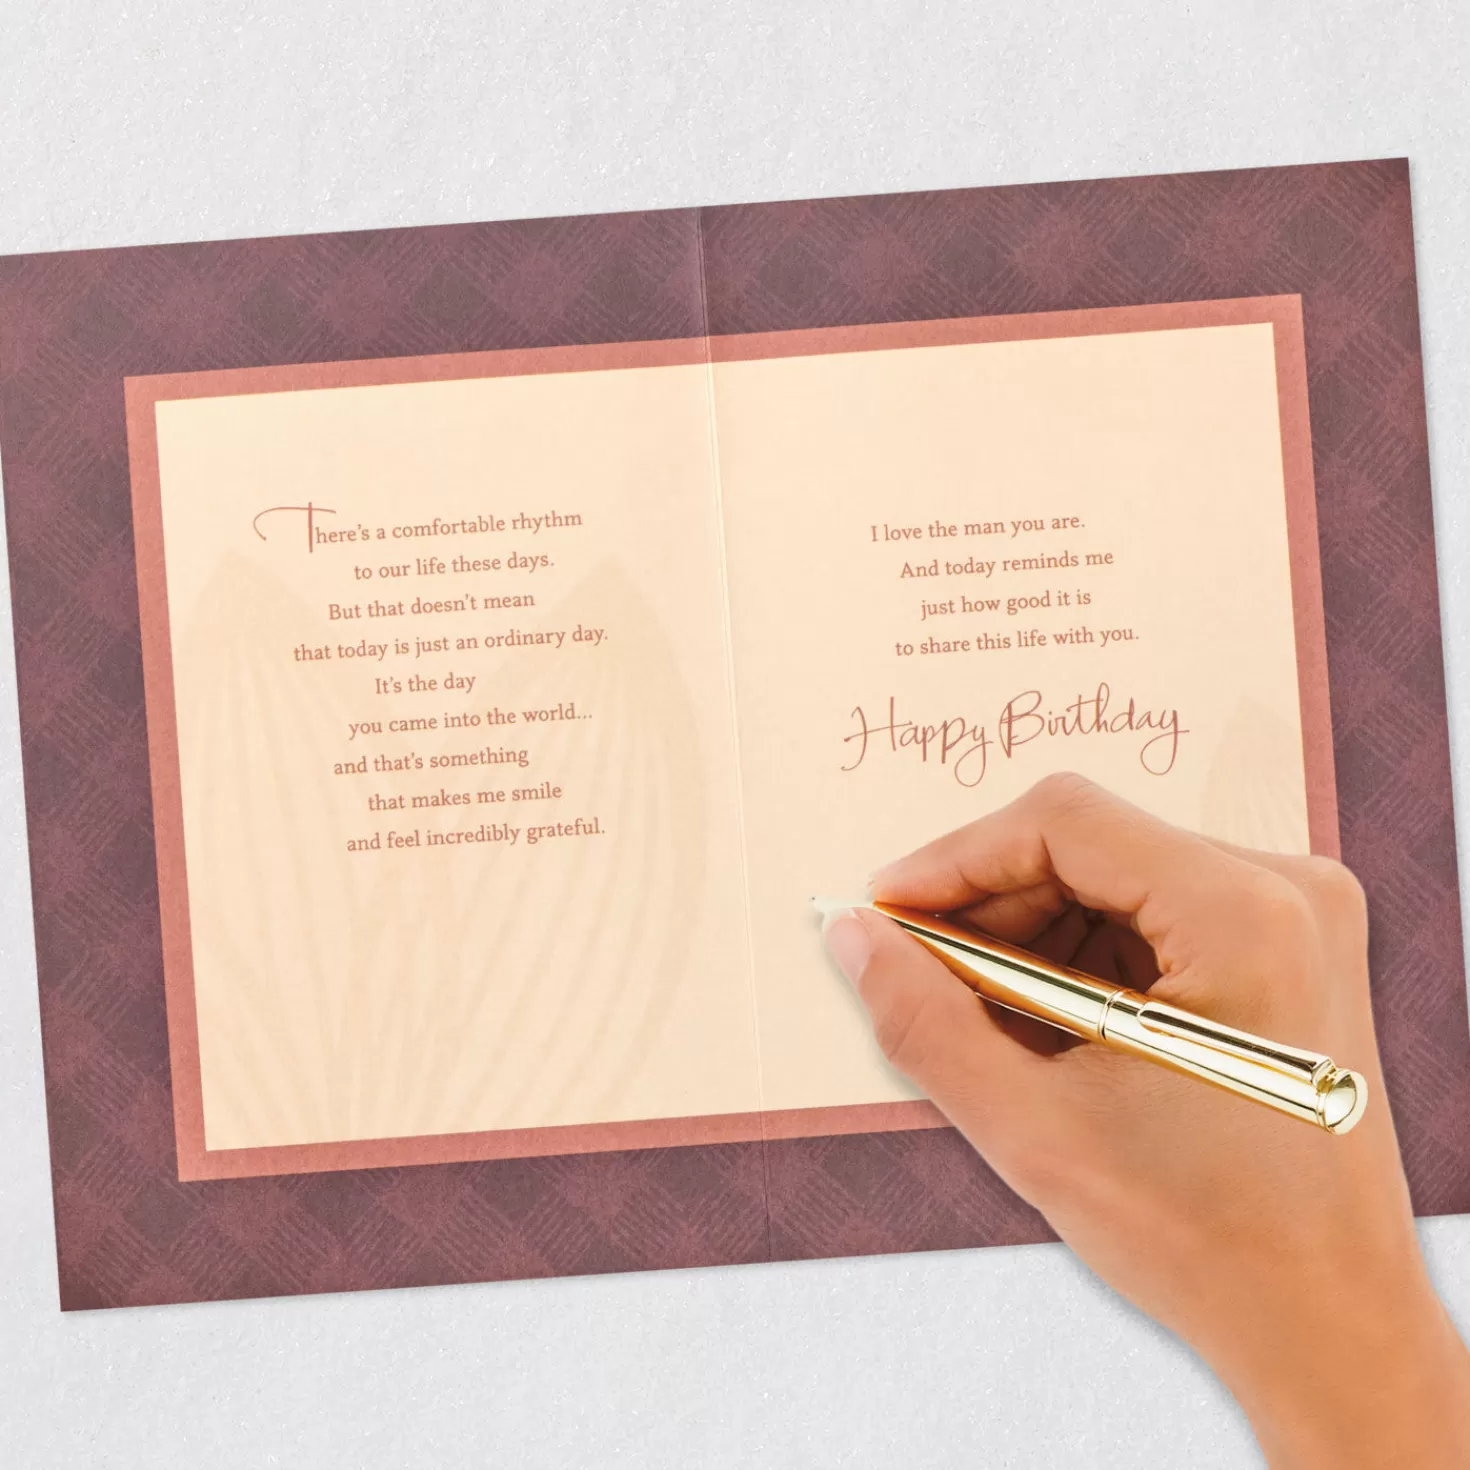 There's a comfortable rhythm
to our life these days.
But that doesn't mean
that today is just an ordinary day.
It's the day
you came into the world...
and that's something
that makes me smile
and feel incredibly grateful.
I love the man you are.
And today reminds me
just how good it is
to share this life with you.
Happy Birthday